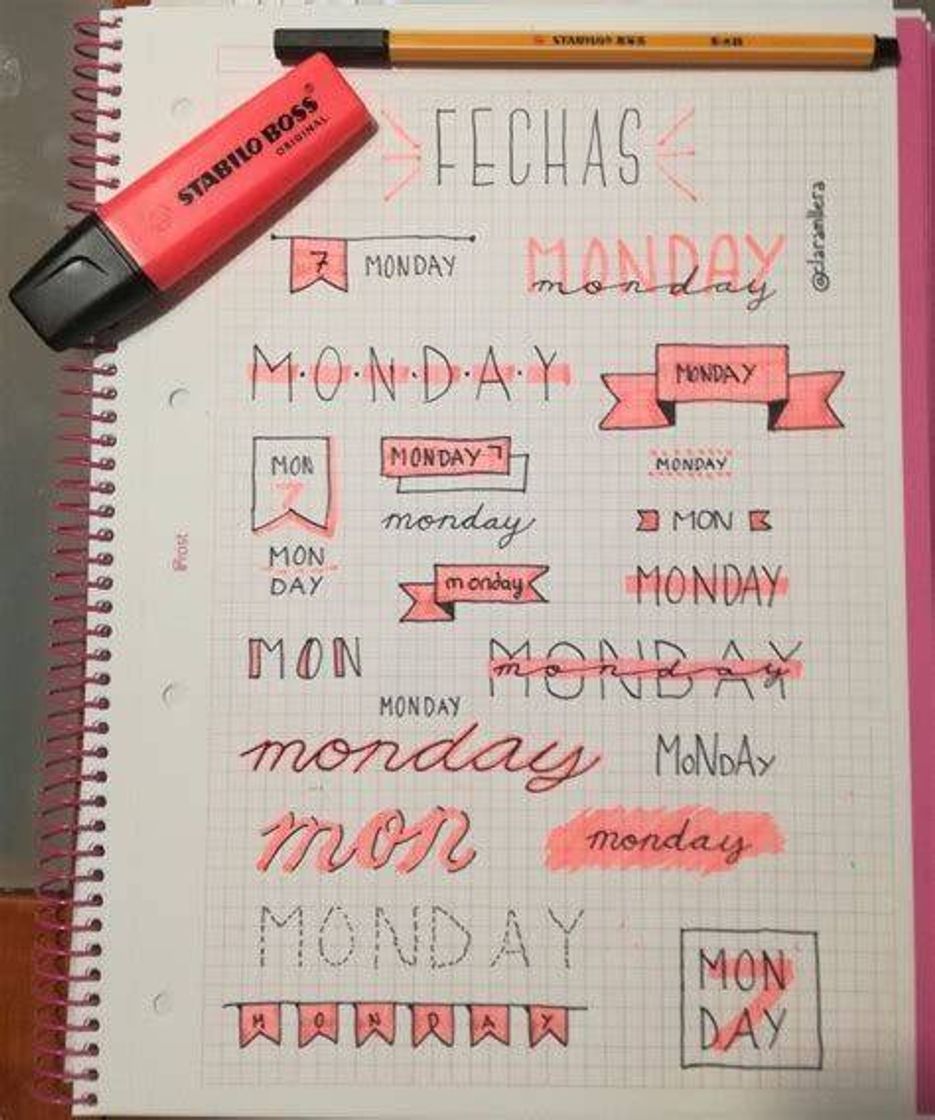 STABILO 888
STABILO BOSS®
ORIGINAL
FECHAS
@claramllera
7 MONDAY
MONDAY
monday
M·O·N·D·A·Y
MONDAY
MON
7
MONDAY 7
MONDAY
monday
MON
MON
DAY
monday
MONDAY
MON
MONDAY
monday
MONDAY
monday
MoNDAy
mon
monday
MONDAY
MONDAY
MON
7
DAY